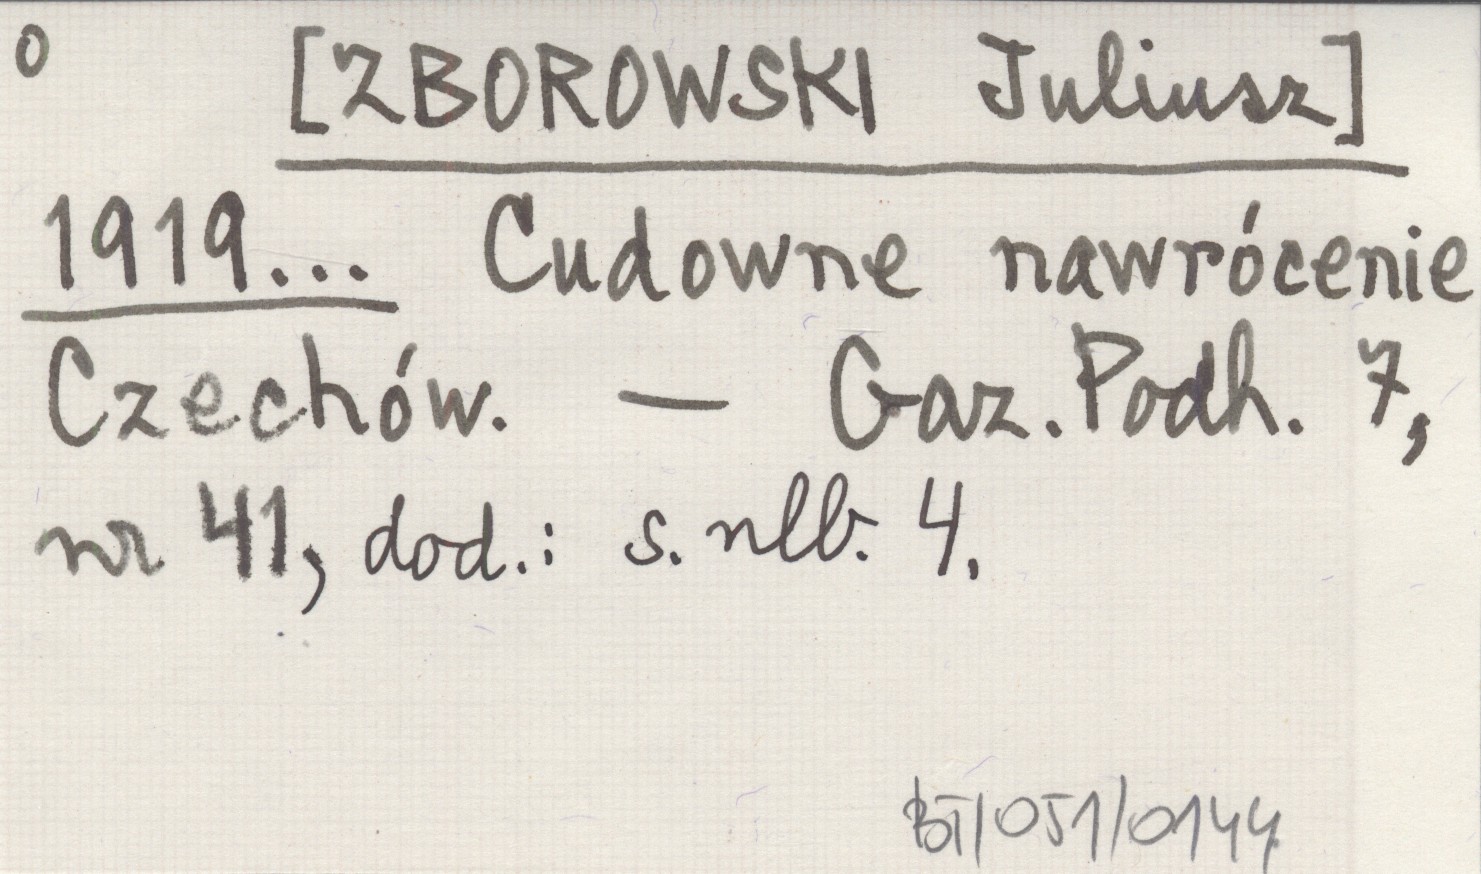 o [ZBOROWSKI Juliusz]
1919... Cudowne nawrócenie
Czechów. — Gaz. Podh. 7,
nr 41, dod.: s. nlb. 4.
BT/051/0144